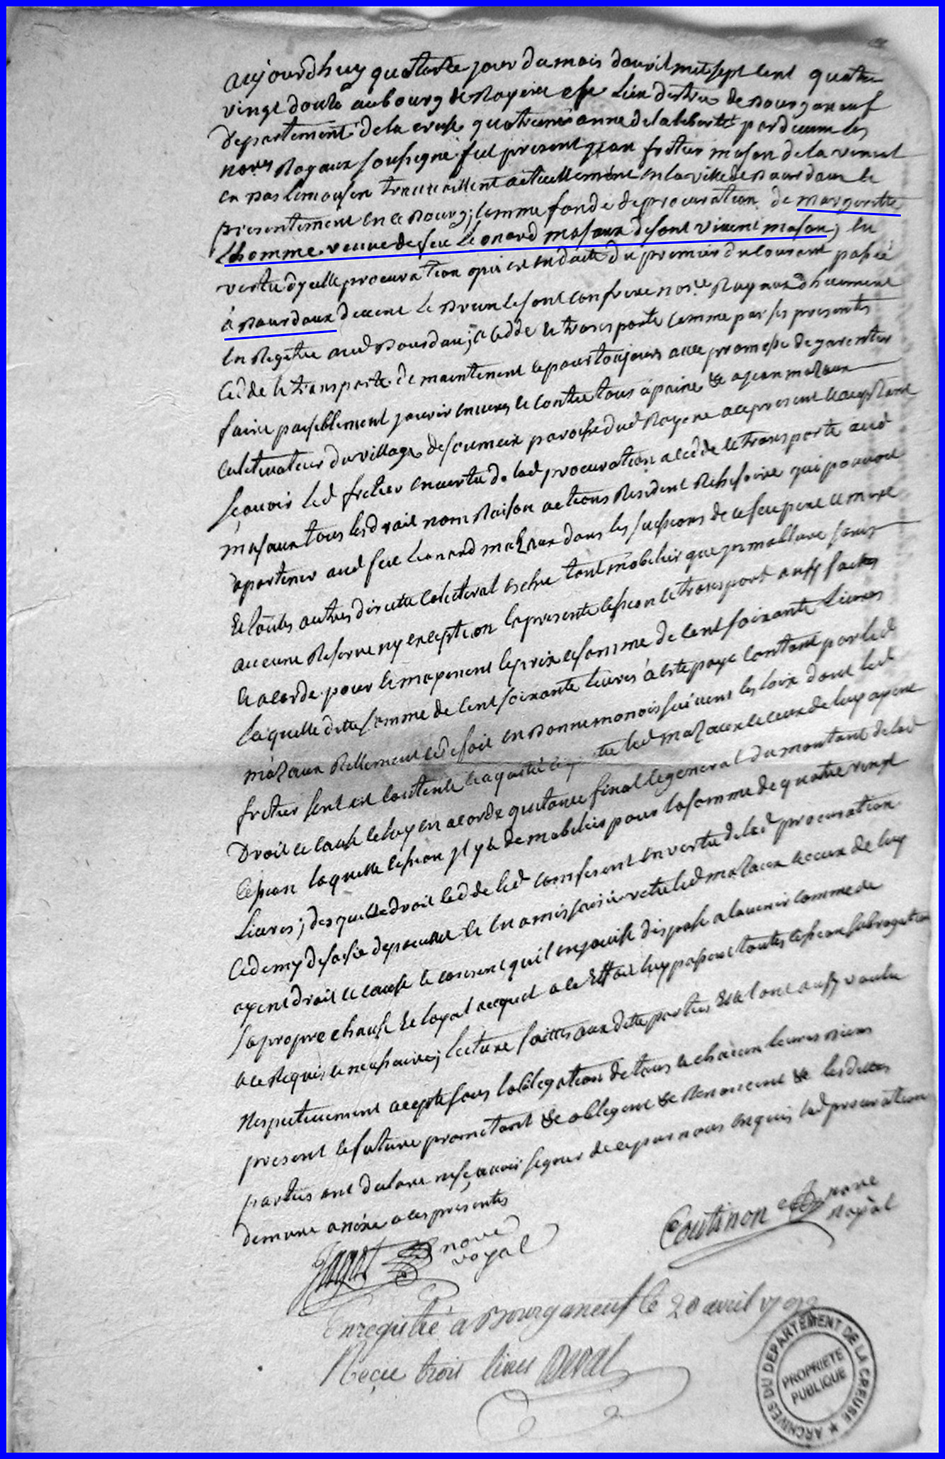 aujourdhuy quatorze jour du mois davril mil sept cent quatre
vingt douze au bourg de Royere chef Lieu district de Bourganeuf
departement de la creuse quatrieme anné de la liberté pardevant les
nores Royaux soussigné fut present jean fretier mason de
en bas limousin travaillent actuellement en la ville de Bourdaux le
presentement en ce Bourg; comme fondé de procuration de margeritte
Lhomme veuve de feu Léonard masaux de font vivent mason; en
vertu dycelle procuration qui est en datte du premier du courent passé
à Bourdaux devent confrere nore Royaux dhuement
en Registre aud Bourdau; a cédde et transporte comme par ses presentes
cedde et transporte de maintenent et pour toujours avec promesse de garentir
faire paisiblement jouir envers et contre tous à peine &c a jean mazaux
cultivateur du village de paroisse dud Royere a ce present et acceptant
sçavoir led fretier en vertu de lad procuration a cedde et transporte aud
masaux tous les droit nom Raison actions Resident Rescisoire qui pouvoit
apartenir aud feu Leonard mazaux dans les sucsions de ses feu pere et mere
et toutes autres directe colecteral eschue tant mobilier que jmobiliere sens
aucune Reserve ny exception la presente cession et transport aussy faittes
et acordé pour et moyenent le prix et somme de cent soixante Livres
laquelle ditte somme de cent soixante livres a esté payé contant par led
mazaux Réellement en bonne monois suivent les loix dont led
fretier sent est contenté led mazaux et ceux de luy ayent
Droit et cause et luy en acorde quitance final et general du montant de lad
cession laquelle cession jl y a de mobilier pour la somme de quatre vingt
Livres; desquelles droit led de led comparent en vertu de lad procuration
cest demy desaisie depouillé et en a mis saisi vetu led mazaux et ceux de luy
ayent droit et cause et consent quil en jouisse dispose a lavenir comme de
sa propre chause et loyal acquet a cet Effait luy passent toutes cession subrogation
a ce Requis et nessaire; lecture faitte aux ditte parties ont aussy voulu
Respectivement accepté sous lobligation de tous et chacun leurs biens
present et future prometant &c obligent &c Renoncent &c lesdites
parties ont declaré ne sçavoir signer de ce par nous enquis lad procuration
demure anéxé a ces presentes
Coutinon nore royal
Jagot nore royal
Enregistré à Bourganeuf le 20 avril 1792
Reçu trois livres Duval
ARCHIVES DU DEPARTEMENT DE LA CREUSE
PROPRIETE PUBLIQUE